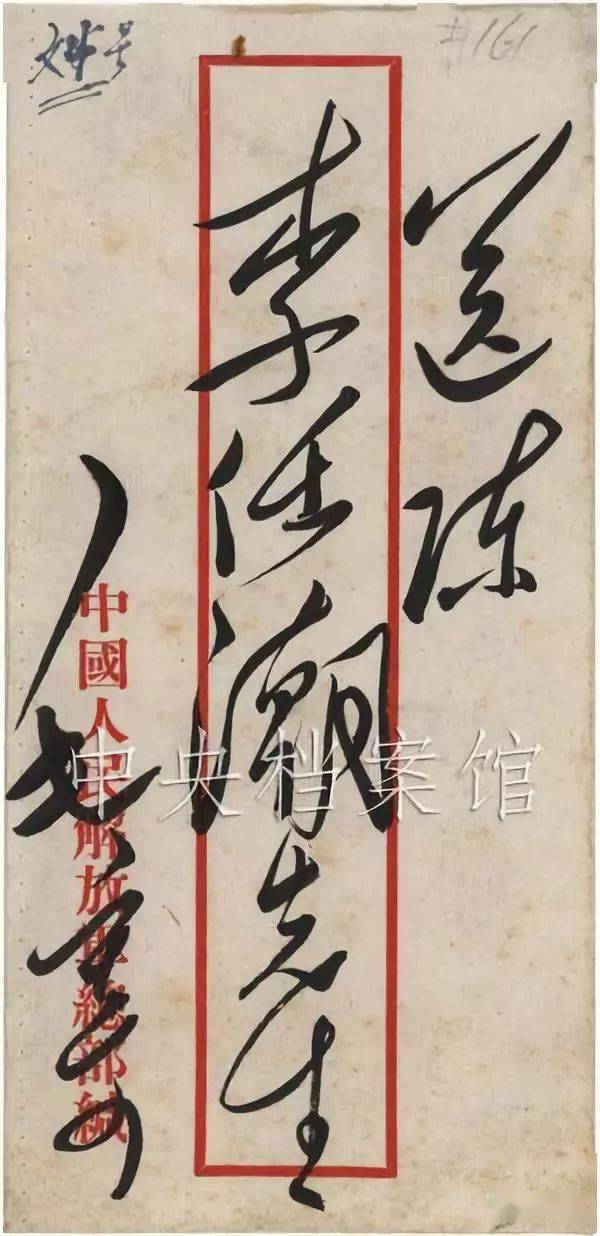 #161
送陈
李任潮先生
中國人民解放軍總部緘
中央档案馆